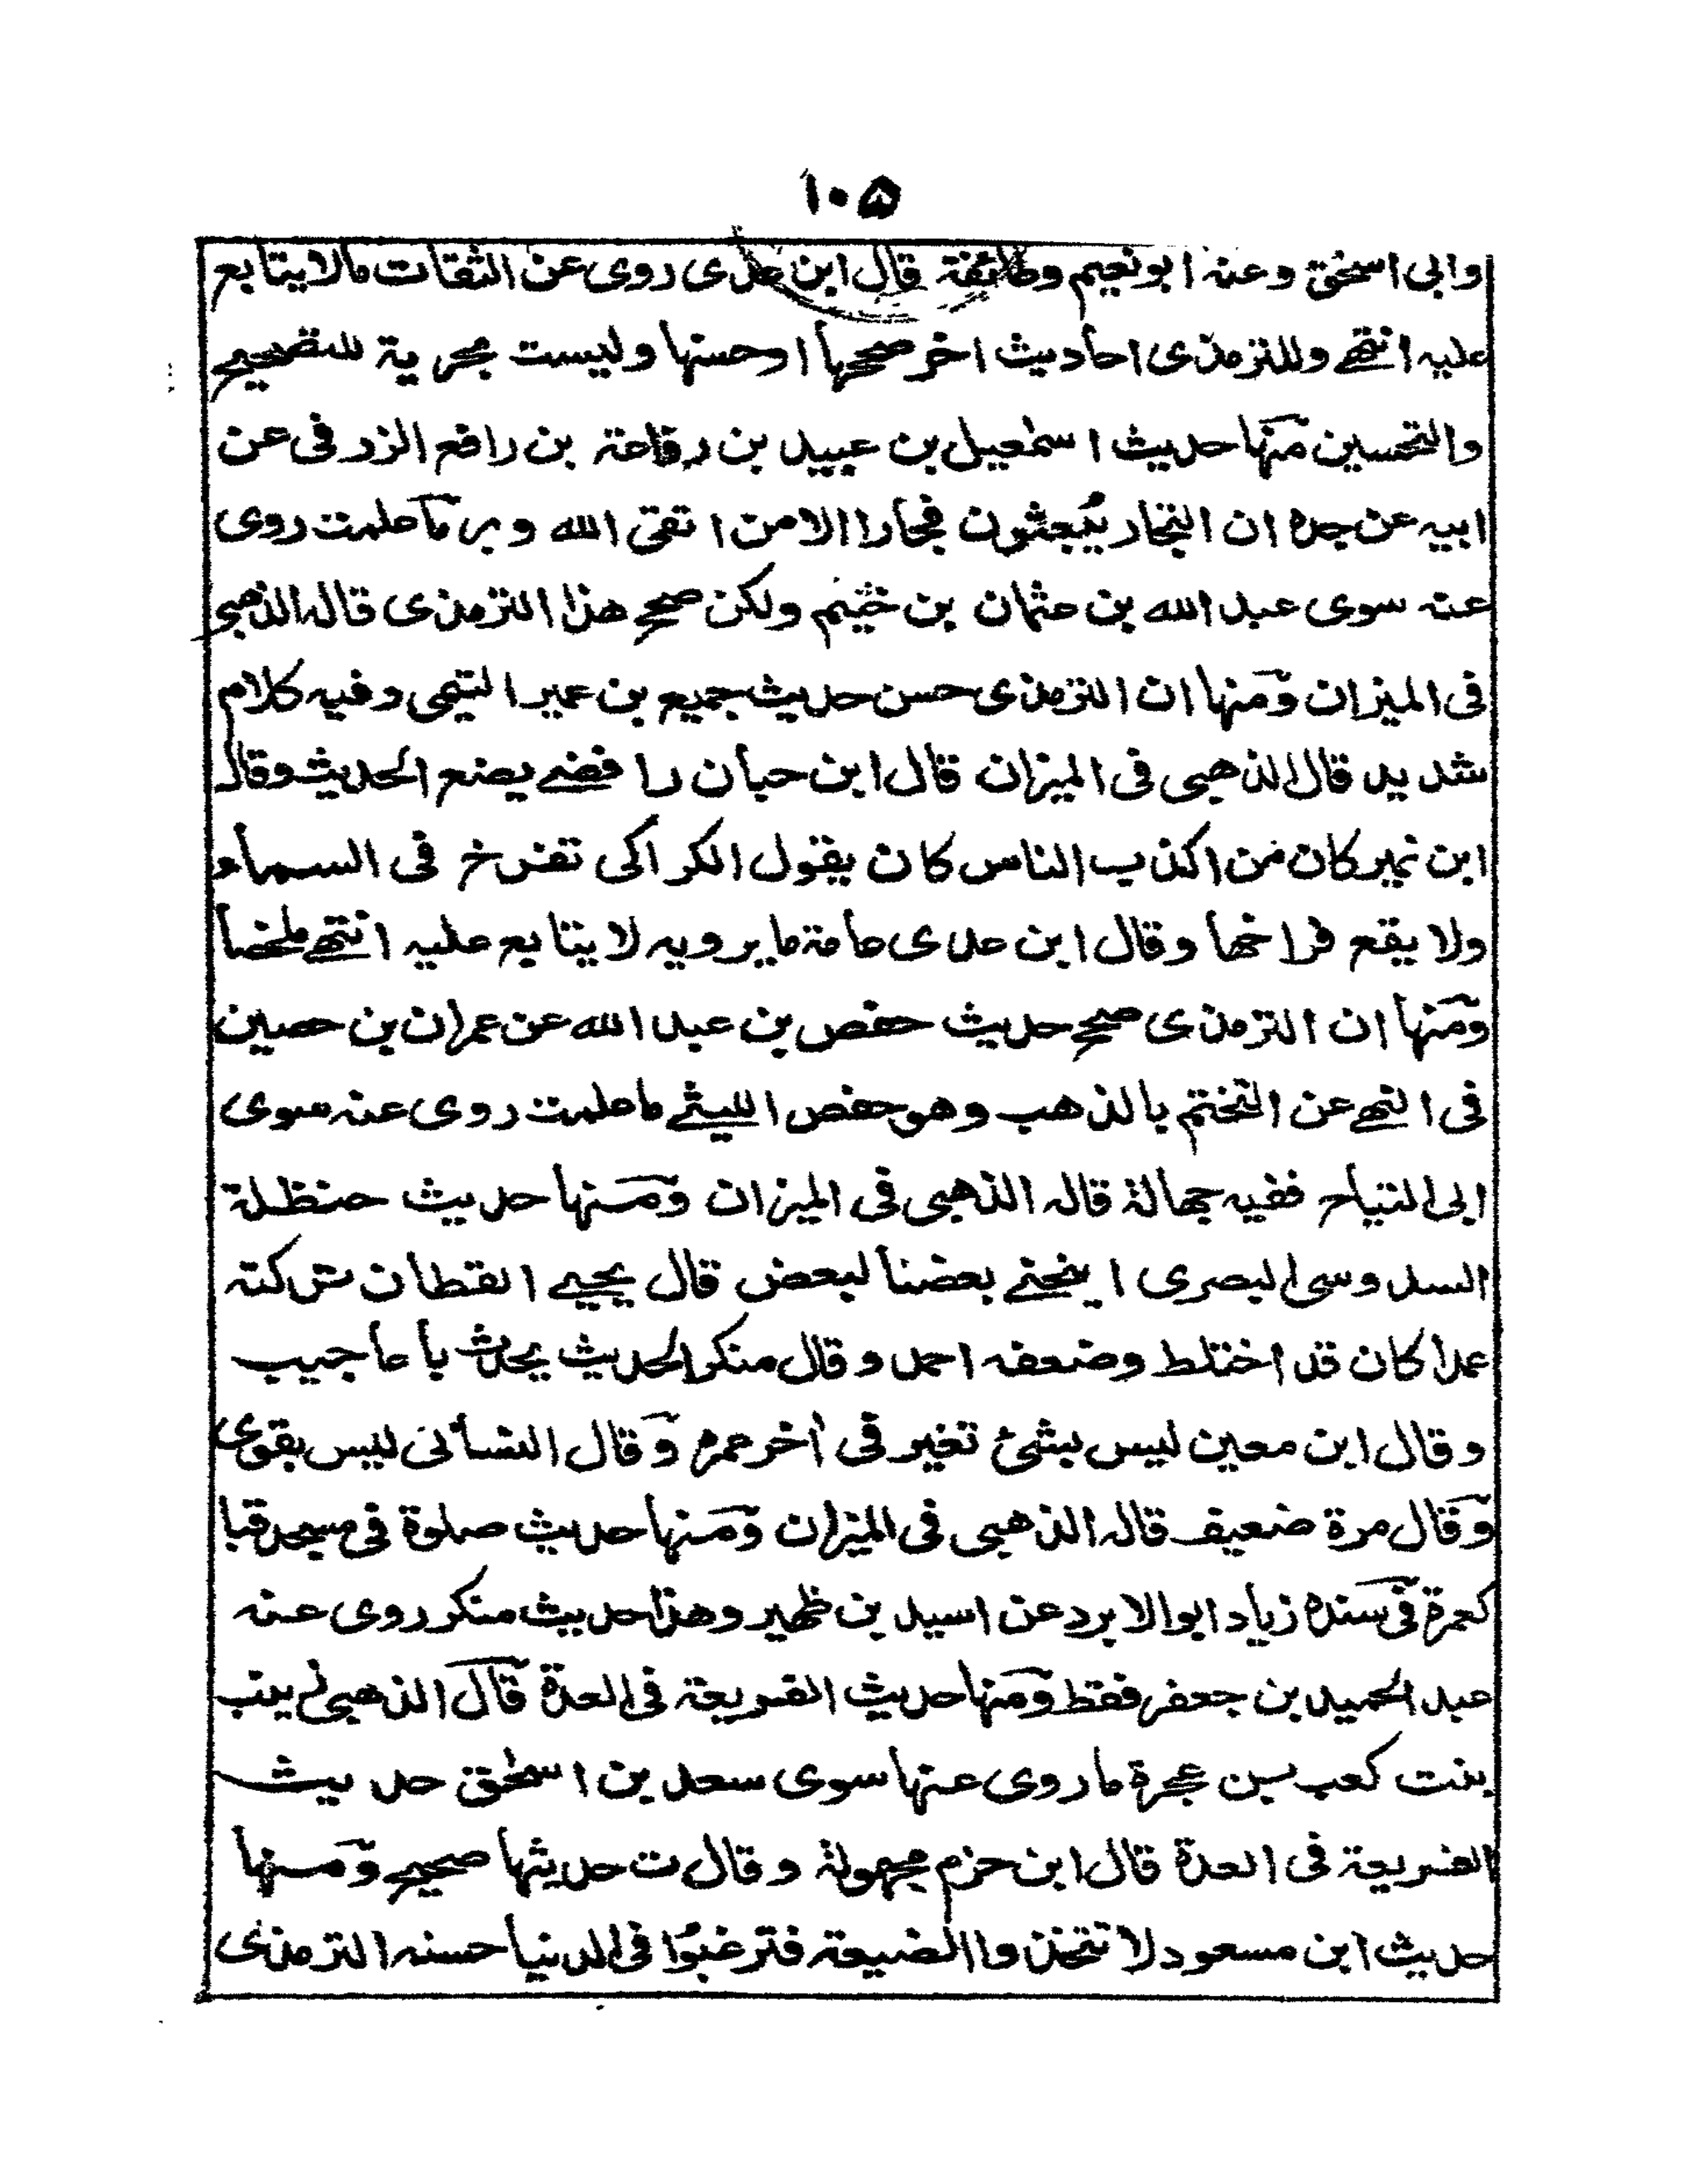 ۱۰۵
وابی اسحٰق وعنه ابونعیم وطائفة قال ابن عدی روی عن الثقات مالا یتابع
علیه انتهے وللترمذی احادیث اخر صححها اوحسنها ولیست بحریة للتصحیح
والتحسین منها حدیث اسمٰعیل بن عبید بن رفاعة بن رافع الزرقی عن
ابیه عن جده ان التجار یُبعثون فجارا الامن اتقی الله وبر ما علمت روی
عنه سوی عبد الله بن عثمان بن خثیم ولکن صحح هذا الترمذی قاله الذهبی
فی المیزان ومنها ان الترمذی حسن حدیث جمیع بن عمیر التیمی وفیه کلام
شدید قال الذهبی فی المیزان قال ابن حبان رافضے یضع الحدیث وقال
ابن نمیر کان من اکذب الناس کان یقول الکراکی تفرخ فی السماء
ولا یقع فراخها وقال ابن عدی عامة ما یرویه لا یتابع علیه انتهے ملخصا
ومنها ان الترمذی صحح حدیث حفص بن عبد الله عن عمران بن حصین
فی النهے عن التختم بالذهب وهو حفص اللیثے ما علمت روی عنه سوی
ابی التیاح ففیه جهالة قاله الذهبی فی المیزان ومنها حدیث حنظلة
السدوسی البصری اینحنے بعضنا لبعض قال یحیے القطان ترکته
عمدا کان قد اختلط وضعفه احمد وقال منکر الحدیث یحدث باعاجیب
وقال ابن معین لیس بشئ تغیر فی اٰخر عمره وقال النسائی لیس بقوی
وقال مرة ضعیف قاله الذهبی فی المیزان ومنها حدیث صلوة فی مسجد قبا
کعمرة فی سنده زیاد ابو الابرد عن اسید بن ظهیر وهذا حدیث منکر روی عنه
عبد الحمید بن جعفر فقط ومنها حدیث الفریعة فی العدة قال الذهبی زینب
بنت کعب بن عجرة ما روی عنها سوی سعد بن اسحٰق حدیث
الفریعة فی العدة قال ابن حزم مجهولة وقال ت حدیثها صحیح ومنها
حدیث ابن مسعود لا تتخذوا الضیعة فترغبوا فی الدنیا حسنه الترمذی